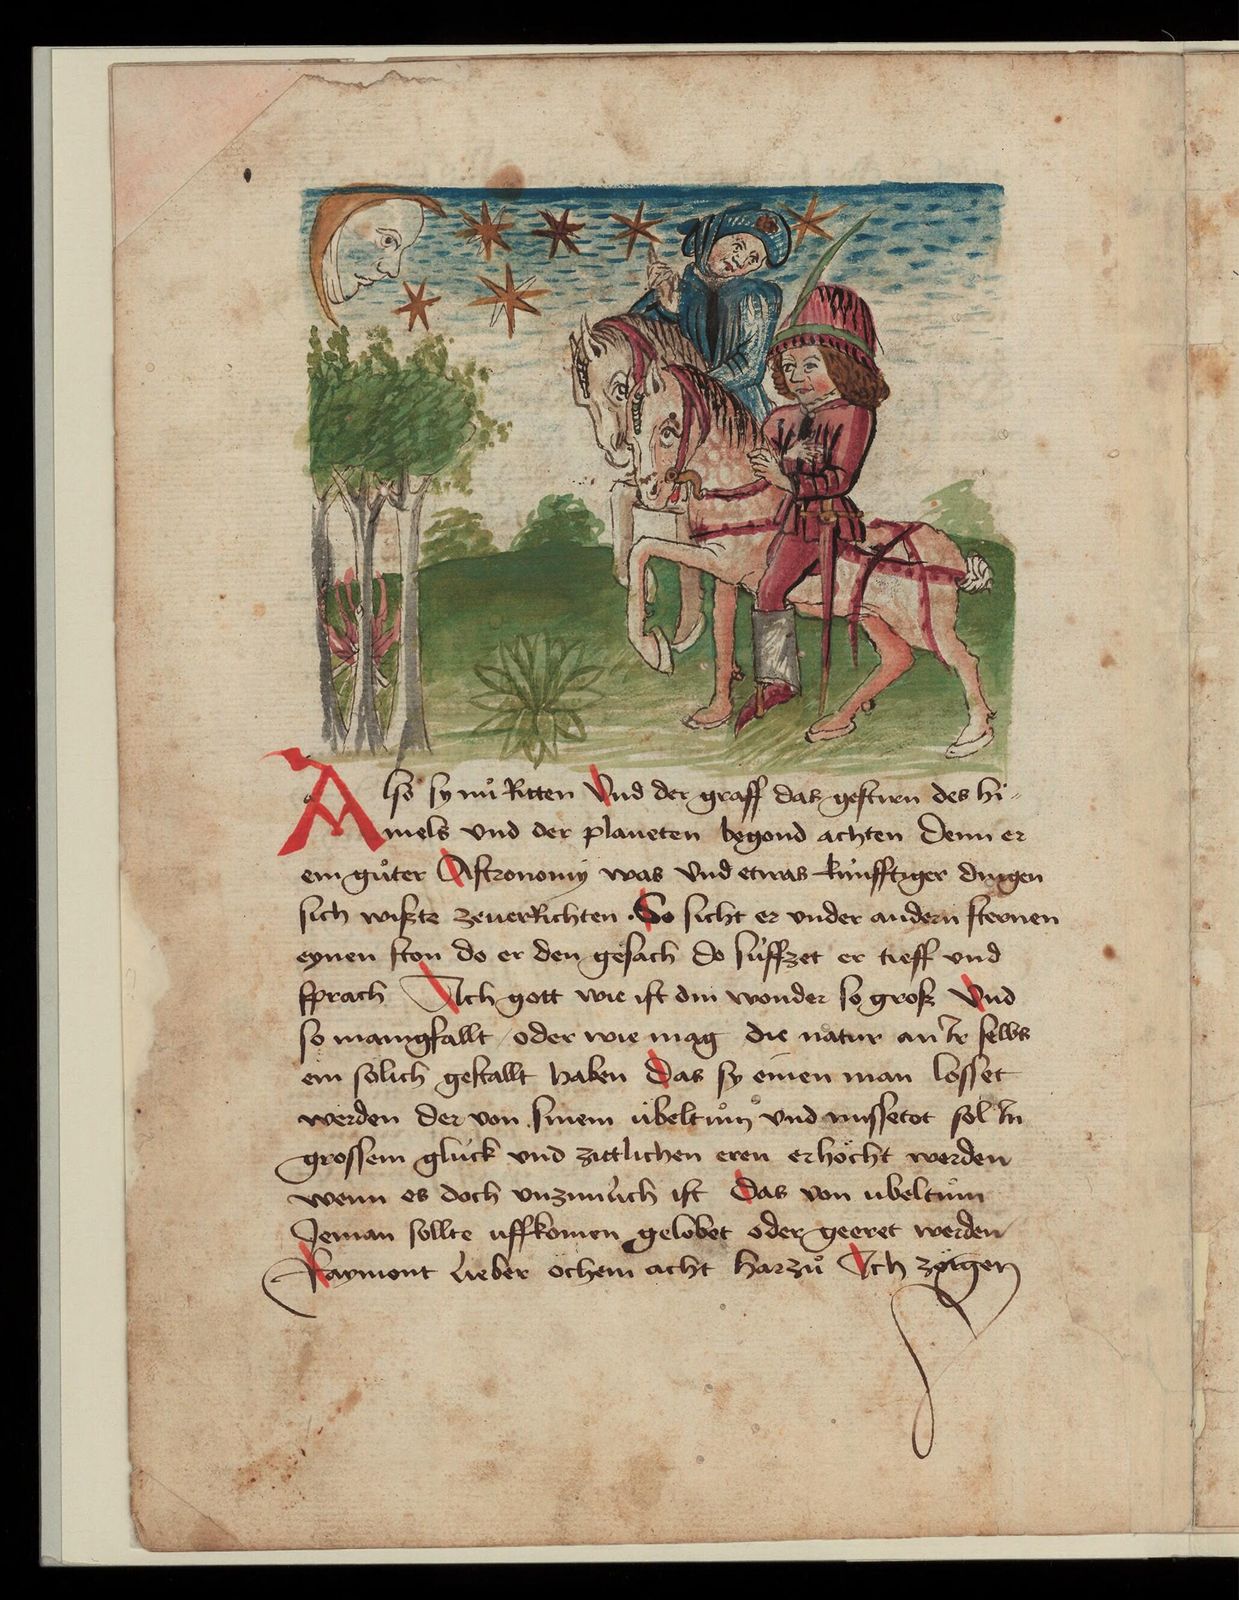 Also sy nuͦ Ritten Vnd der graff das gestirn des hi-
mels vnd der planeten begond achten Denn er
ein guͦter Astronomy was vnd etwas künfftiger dingen
sich wißte zeuerRichten . So sicht er vnder andern sternen
eynen ston do er den gesach do süffzet er tieff vnd
sprach Ach gott wie ist din wonder so groß Vnd
so manigfallt / oder wie mag die natur an Ir selbs
ein solich gestallt haben Das sy einen man losset
werden der von sinem übeltuͦm vnd missetot sol In
grossem glück vnd zittlichen eren erhöcht werden
wenn es doch vnzimlich ist Das von ubeltuͦm
Jeman sollte uffkomen gelobet oder geeret werden
Raymont Lieber öchem acht harzuͦ Ich zöigen